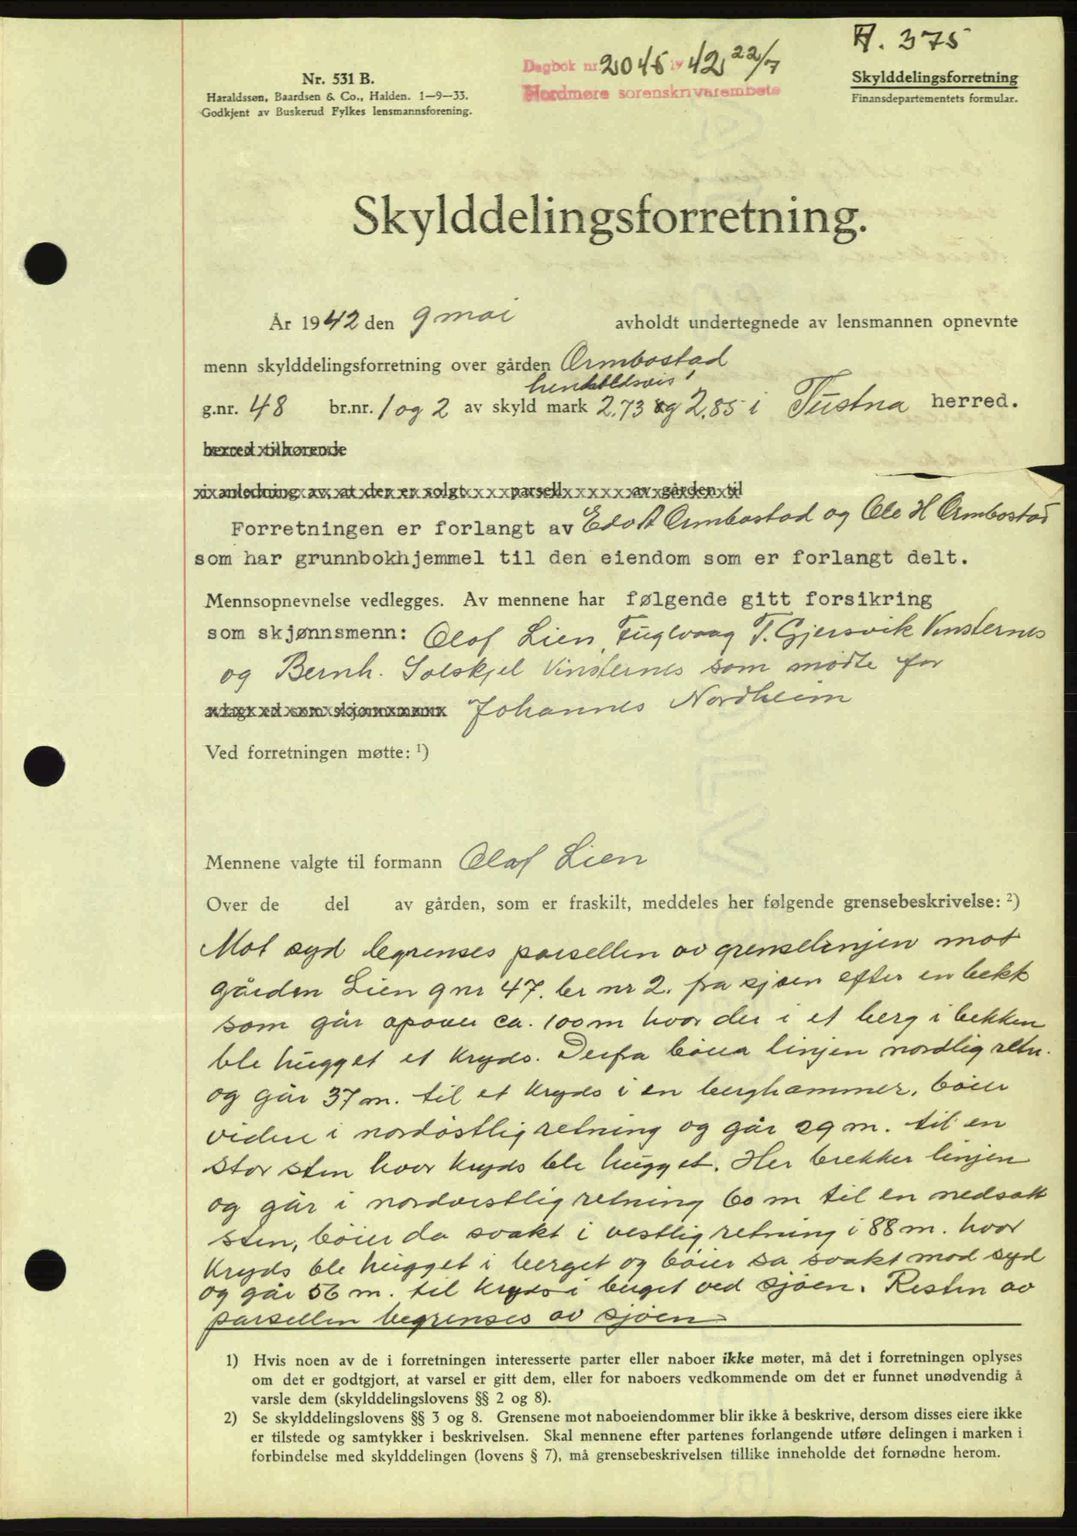 A. 375
Nr. 531 B.
Haraldssøn, Baardsen & Co., Halden. 1–9–33.
Godkjent av Buskerud Fylkes lensmannsforening.
Dagbok nr. 2045 19 42 22/7
Nordmøre sorenskriverembete
Skylddelingsforretning
Finansdepartementets formular.
Skylddelingsforretning.
År 1942 den 9 mai avholdt undertegnede av lensmannen opnevnte
menn skylddelingsforretning over gården Ormbostad
henholdsvis
g.nr. 48 br.nr. 1 og 2 av skyld mark 2,73 og 2,85 i Tustna herred.
herred tilhørende
i anledning av at der er solgt parsell av gården til
Forretningen er forlangt av Edv A Ormbostad og Ole H Ormbostad
som har grunnbokhjemmel til den eiendom som er forlangt delt.
Mennsopnevnelse vedlegges. Av mennene har følgende gitt forsikring
som skjønnsmenn: Olaf Lien, Fuglvaag T. Gjersvik Vinsternes
og Bernh. Solskjel Vinsternes som mødte for
avlagt ed som skjønnsmenn Johannes Nordheim
Ved forretningen møtte: ¹)
Mennene valgte til formann Olaf Lien
Over de del av gården, som er fraskilt, meddeles her følgende grensebeskrivelse: ²)
Mot syd begrenses parsellen av grenselinjen mot
gården Lien gnr 47. br nr 2. fra sjøen efter en bekk
som går opover ca. 100 m hvor der i et berg i bekken
ble hugget et kryds. Derfra bøier linjen nordlig retn.
og går 37 m. til et kryds i en berghammer, bøier
videre i nordøstlig retning og går 29 m. til en
stor sten hvor kryds ble hugget. Her brekker linjen
og går i nordvestlig retning 60 m til en nedsatt
sten, bøier da svakt i vestlig retning i 88 m. hvor
kryds ble hugget i berget og bøier sa svakt mod syd
og går 56 m. til kryds i berget ved sjøen. Resten av
parsellen begrenses av sjøen
1) Hvis noen av de i forretningen interesserte parter eller naboer ikke møter, må det i forretningen oplyses
om det er godtgjort, at varsel er gitt dem, eller for naboers vedkommende om det er funnet unødvendig å
varsle dem (skylddelingslovens §§ 2 og 8).
2) Se skylddelingslovens §§ 3 og 8. Grensene mot naboeiendommer blir ikke å beskrive, dersom disses eiere ikke
er tilstede og samtykker i beskrivelsen. Skal mennene efter partenes forlangende utføre delingen i marken i
forbindelse med skylddelingen (lovens § 7), må grensebeskrivelsen tillike inneholde det fornødne herom.